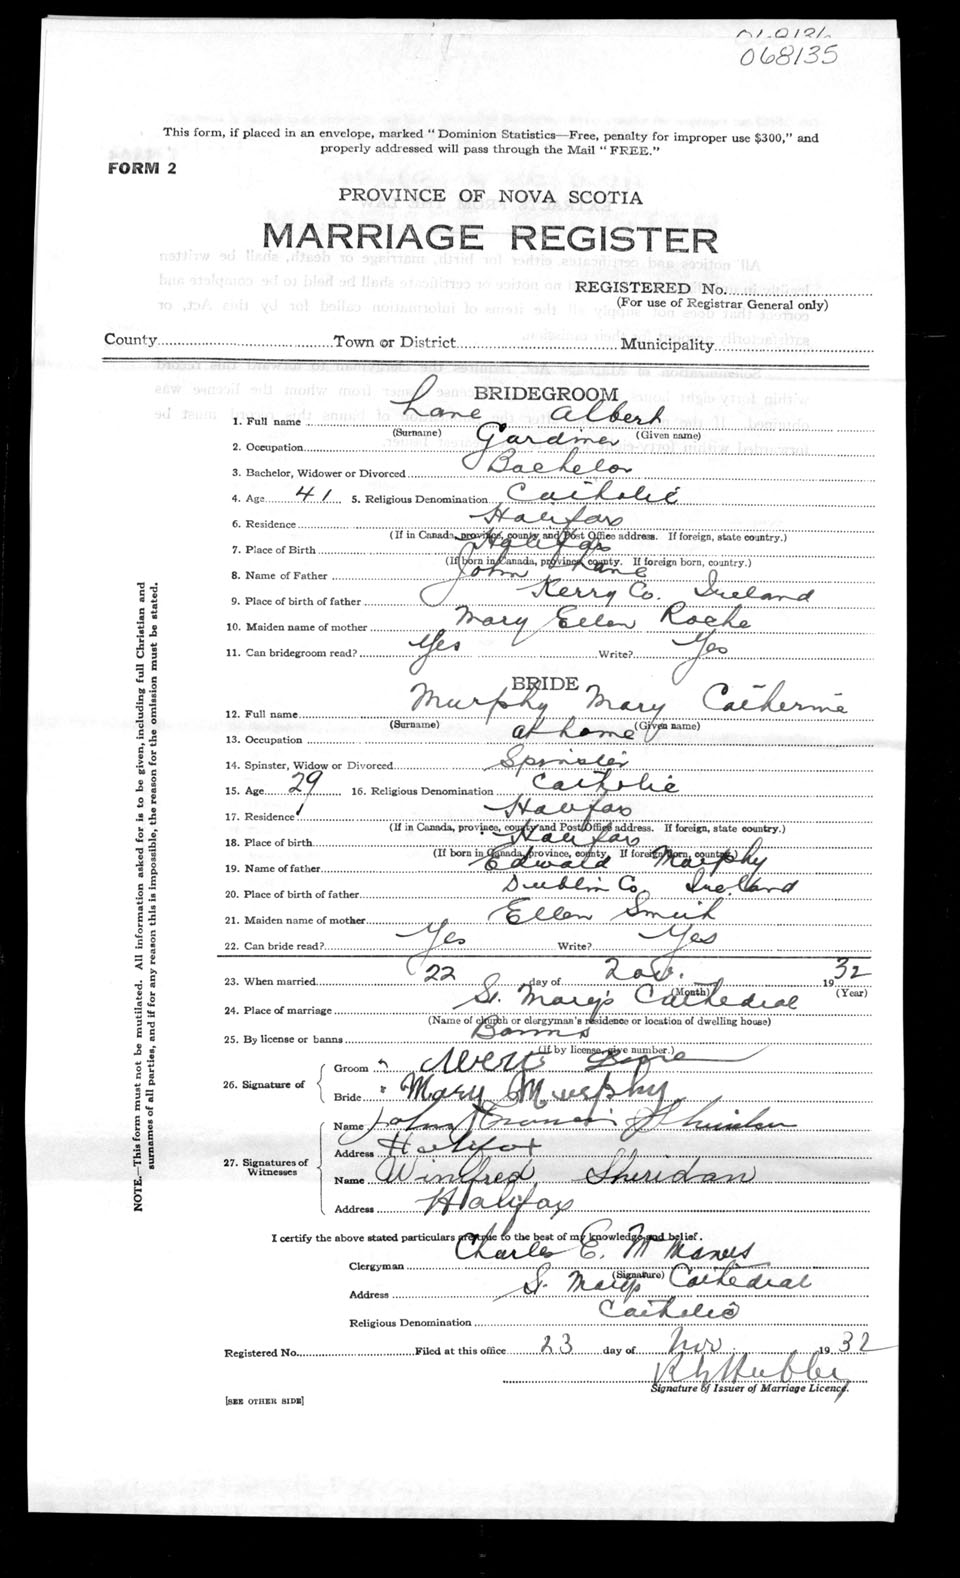 068135
This form, if placed in an envelope, marked "Dominion Statistics—Free, penalty for improper use $300," and
properly addressed will pass through the Mail "FREE."
FORM 2
PROVINCE OF NOVA SCOTIA
MARRIAGE REGISTER
REGISTERED No.
(For use of Registrar General only)
County Town or District Municipality
BRIDEGROOM
1. Full name Lane Albert
(Surname) (Given name)
2. Occupation Gardiner
3. Bachelor, Widower or Divorced Bachelor
4. Age 41 5. Religious Denomination Catholic
6. Residence Halifax
(If in Canada, province, county and Post Office address. If foreign, state country.)
7. Place of Birth Halifax
(If born in Canada, province, county. If foreign born, country.)
8. Name of Father John Lane
9. Place of birth of father Kerry Co. Ireland
10. Maiden name of mother Mary Ellen Roche
11. Can bridegroom read? Yes Write? Yes
BRIDE
12. Full name Murphy Mary Catherine
(Surname) (Given name)
13. Occupation at home
14. Spinster, Widow or Divorced Spinster
15. Age 29 16. Religious Denomination Catholic
17. Residence Halifax
(If in Canada, province, county and Post Office address. If foreign, state country.)
18. Place of birth Halifax
(If born in Canada, province, county. If foreign born, country.)
19. Name of father Edward Murphy
20. Place of birth of father Dublin Co. Ireland
21. Maiden name of mother Ellen
22. Can bride read? Yes Write? Yes
23. When married 22 day of Nov. 1932
(Month) (Year)
24. Place of marriage St. Mary's Cathedral
(Name of church or clergyman's residence or location of dwelling house)
25. By license or banns Banns
(If by license, give number.)
26. Signature of
Groom Albert Lane
Bride Mary Murphy
27. Signatures of
Witnesses
Name John Francis
Address Halifax
Name Winifred Sheridan
Address Halifax
I certify the above stated particulars are true to the best of my knowledge and belief.
Clergyman Charles E. McManus
(Signature)
Address St. Mary's Cathedral
Religious Denomination Catholic
Registered No. Filed at this office 23 day of Nov 1932
Signature of Issuer of Marriage Licence.
[SEE OTHER SIDE]
NOTE.—This form must not be mutilated. All information asked for is to be given, including full Christian and
surnames of all parties, and if for any reason this is impossible, the reason for the omission must be stated.